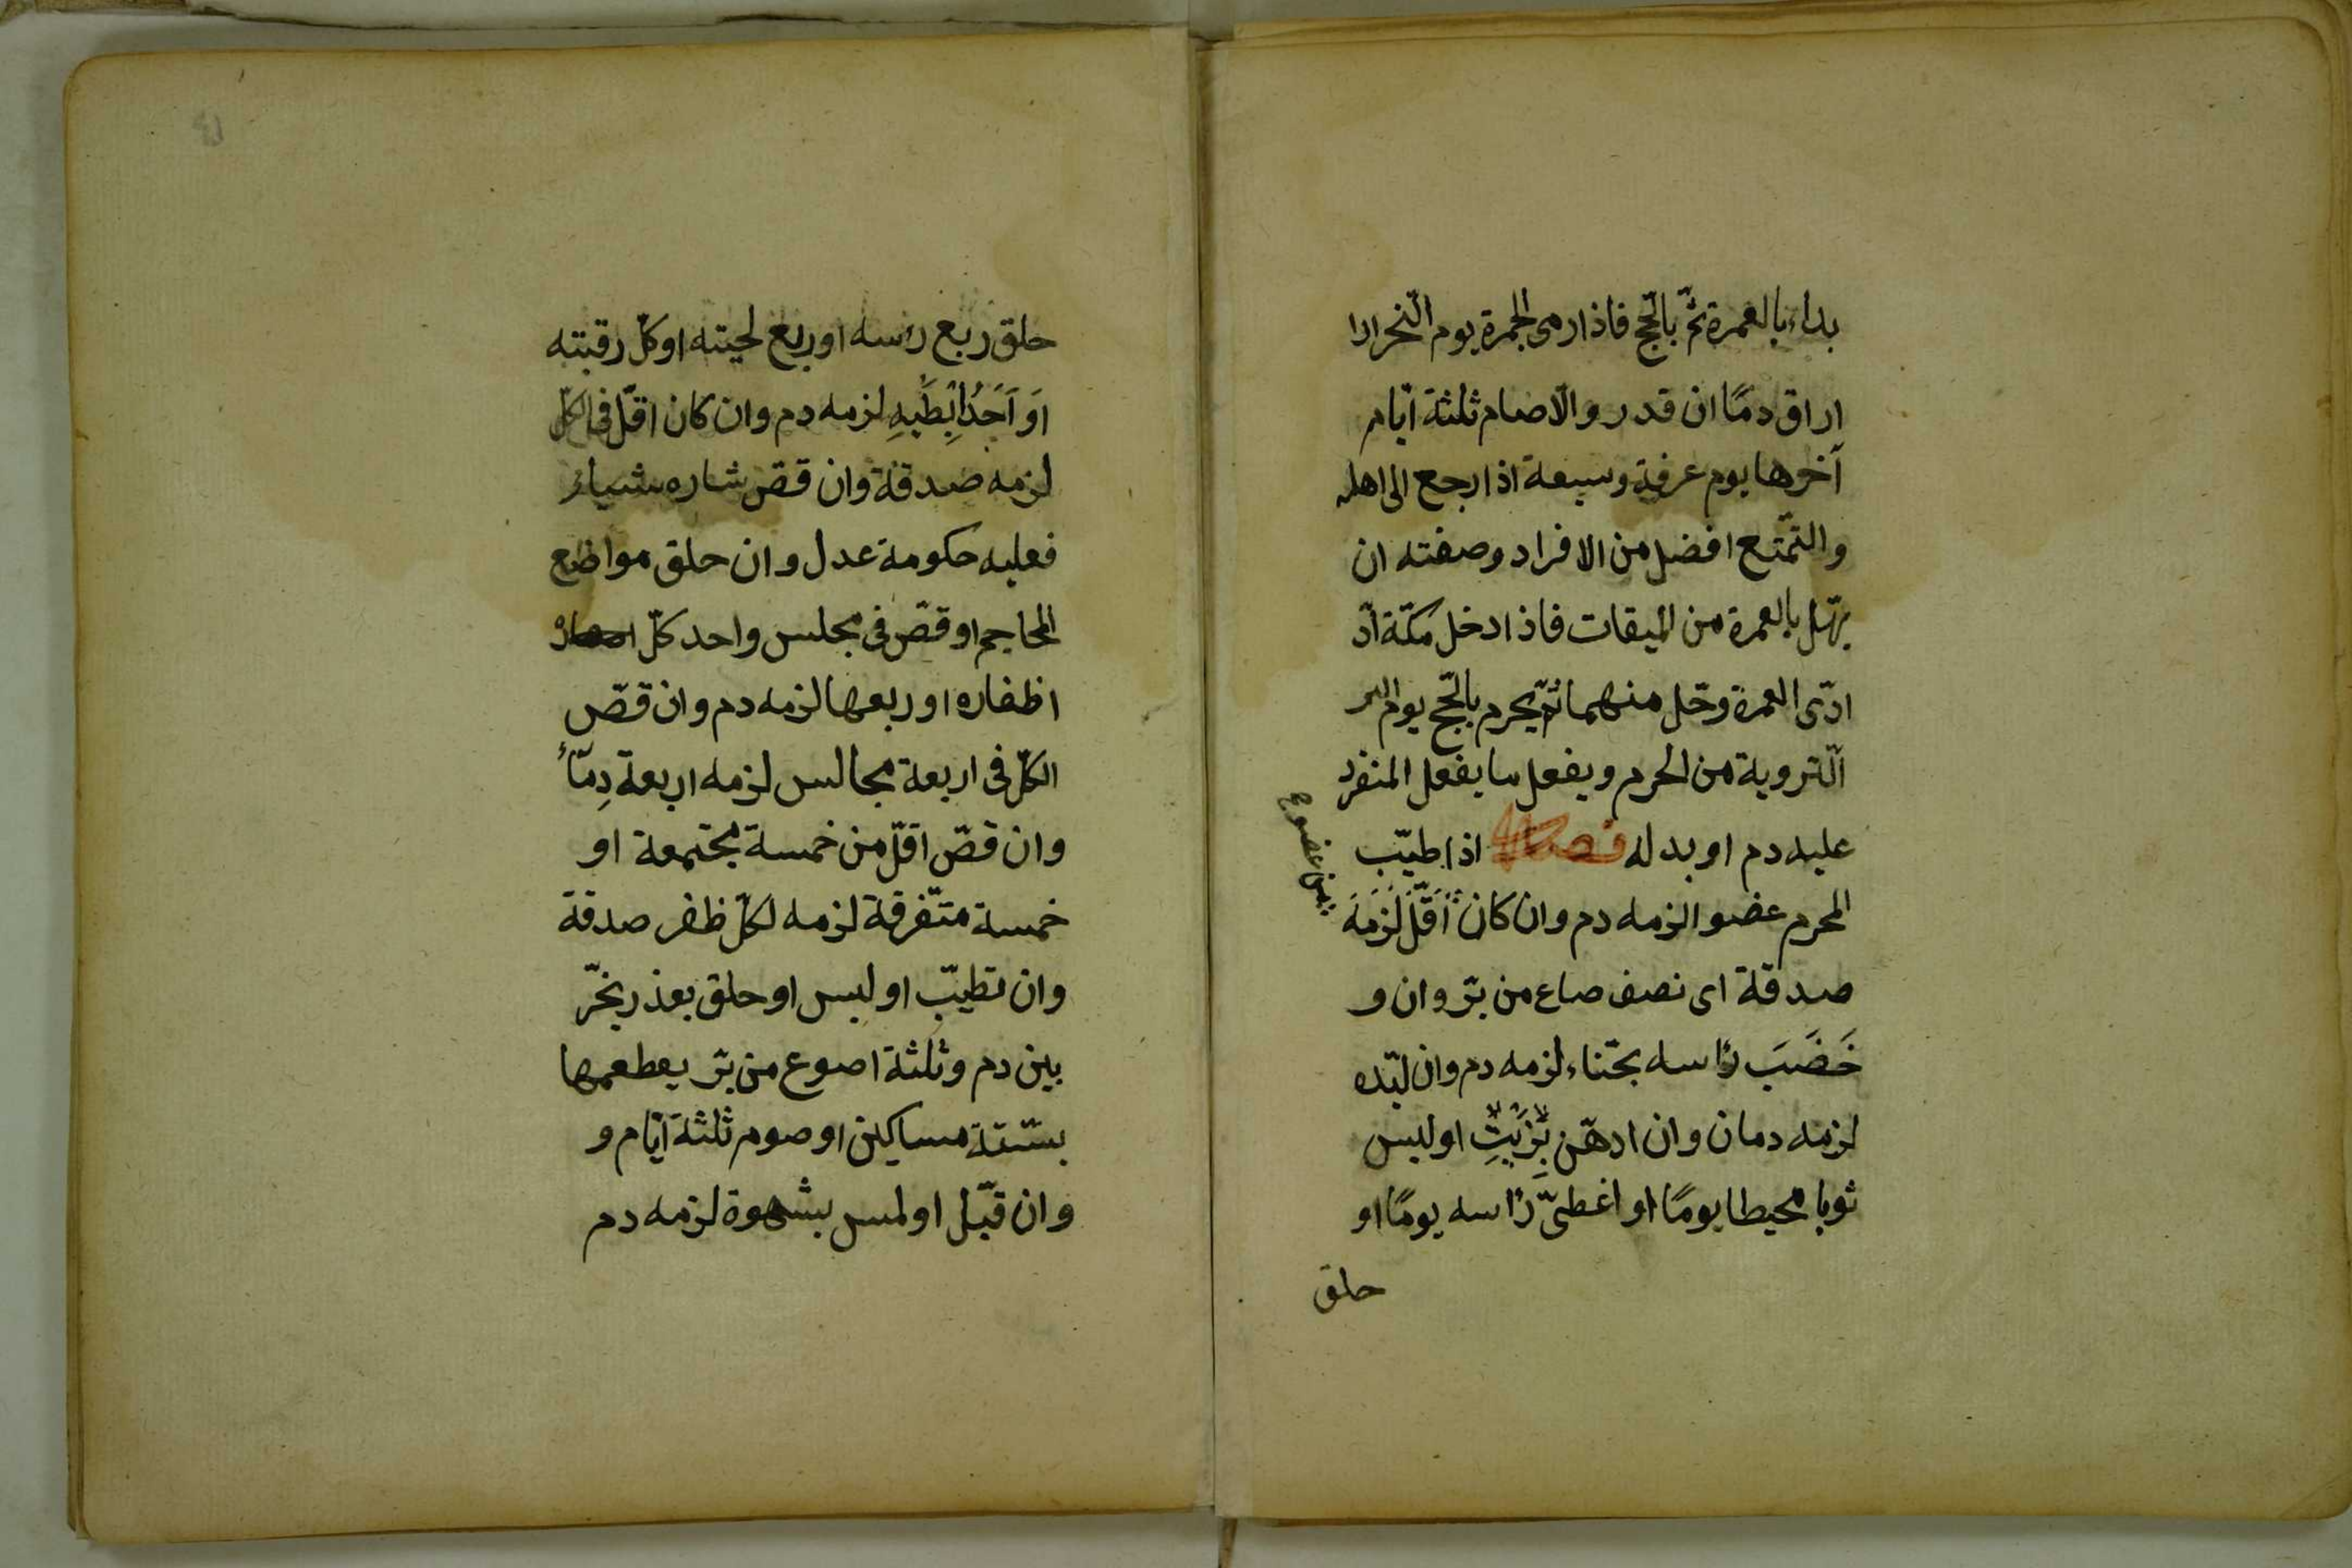 بداء بالعمرة ثمّ بالحّج فاذا رمى الجمرة يوم النّحر ارا
اراق دمًا ان قدر والّا صام ثلثة ايّام
آخرها يوم عرفة وسبعة اذا رجع الى اهله
والتّمتع افضل من الافراد وصفته ان
يهّل بالعمرة من الميقات فاذا دخل مكّة ادّ
ادّى العمرة وحّل منهما ثمّ يحرم بالحّج يوم
الّتروية من الحرم ويفعل ما يفعل المنفرد
عليه دم او بدله فصل اذا طيّب
المحرم عضوا لزمه دم وان كان اَقَلّ لَزَمَهَ
من عضو
صدقة اى نصف صاع من برّ وان و
خَضَبَ رأسه بحّناء لزمه دم وان لبّده
لزمه دمان وان ادهّن بِزَيْتٍ او لبس
ثوبا محيطا يومًا او اغطىّ رأسه يومًا او
حلق
حلق ربع رأسه او ربع لحيته او كلّ رقبته
اَو اَحَدُ اِبِطَيْهِ لزمه دم وان كان اقلّ فى الكلّ
لزمه صدقة وان قصّ شاربه شياء
فعليه حكومة عدل وان حلق مواضع
المحاجم او قصّ فى مجلس واحد كلّ
اظفاره او ربعها لزمه دم وان قصّ
الكلّ فى اربعة مجالس لزمه اربعة دِمّاُء
وان قصّ اقلّ من خمسة مجتمعة او
خمسة متّفرقة لزمه لكلّ ظفر صدقة
وان تطيّب او لبس او حلق بعذر يخّر
بين دم وثلثة اصوع من برّ يعطعمها
بستّتة مساكين او صوم ثلثة ايّام و
وان قبّل او لمس بشهوة لزمه دم